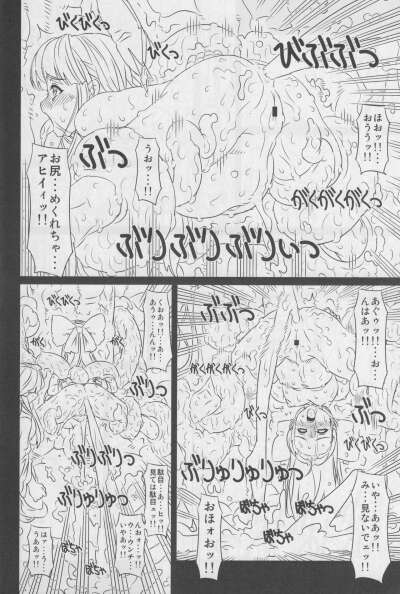 びくびくっ
びくっ
びぶぶぶっ
ほおッ!!‥
おううッ!!
うおッ‥‥!!
ぶっ
がくがくがくっ
お尻‥‥めくれちゃ‥‥
アヒイィッ!!
ぶりぶりぶりいっ
あぐゥッ!!‥‥お‥‥
んはあッ!!
ぶぶっ
がくがくがくっ
びくっ
ぶっ
びくびくっ
ぶりゅりゅりゅっ
いや‥‥ああッ!!
み‥‥見ないでェッ!!
おほォおッ!!
ぼちゃ
ぼちゃ
びくびくっ
くおあッ!!‥‥あ‥‥
あうゥ‥‥んんッ!!
がくっ
ぶりっ
びくっ
ぶりぶりっ
駄目‥‥あ‥‥ヒッ!!
見ては駄目ェッ!!
ぶりゅりゅっ
ぼちゃ
ぼちゃ